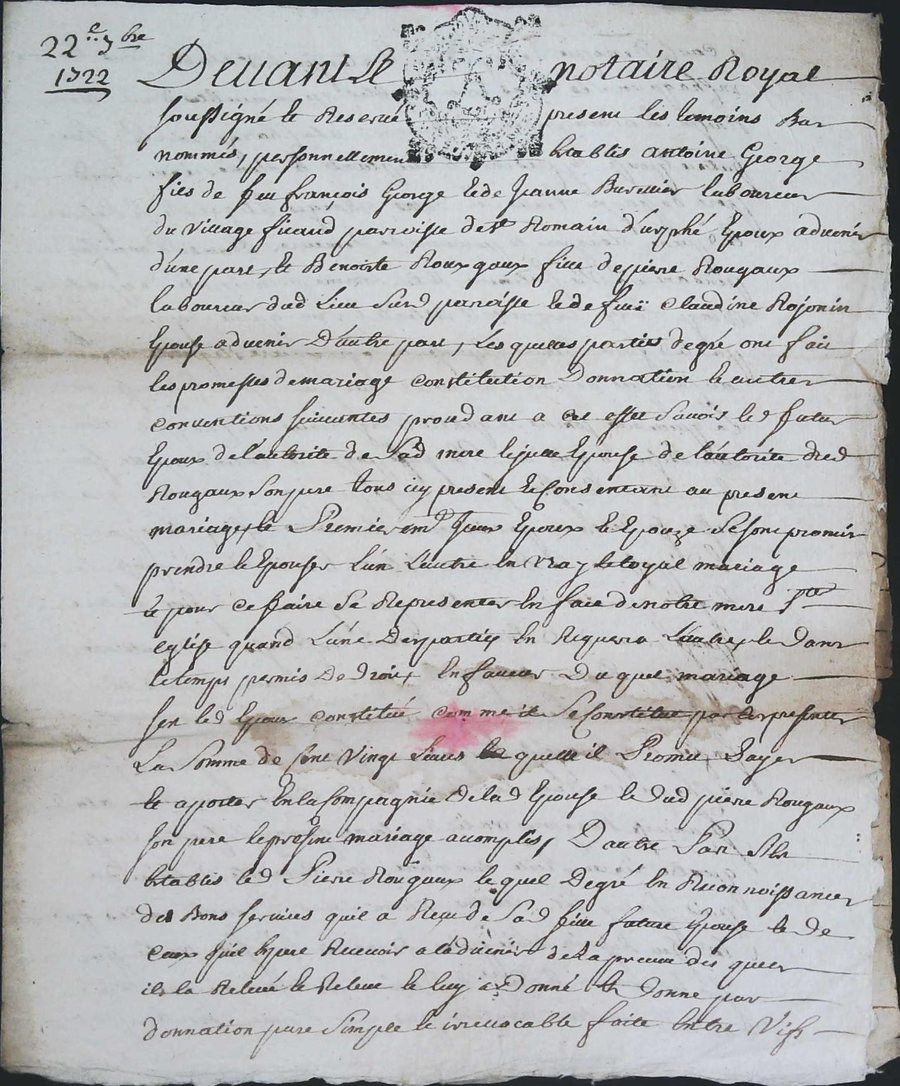 22e 7bre
1722
Devant le notaire Royal
soussigné et Reservé present les temoins Bas
nommés, personnellement Etablis antoine George
fils de feu françois George et de Jeanne laboureur
du village ficaud paroisse de St Romain d'urphé Epoux advenir
d'une part, et Benoiste Rougaux fille de pierre Rougaux
laboureur dud Lieu Susd paroisse et de fuë Claudine Rojonin
Epouse advenir D'autre part, Les quelles parties de gré ont fait
les promesses de mariage constitution Donnation et autres
conventions suivantes procedant a cet effet Savoir led futur
Epoux de l'autorité de Sad mere et future Epouse de l'autorité dud
Rougaux Son pere tous icy present et Consentant au present
mariage, et Premieremt futurs Epoux et Epouze se sont promis
prendre et Epouser L'un L'autre En vray et loyal mariage
et pour ce faire se Representer En face de notre mere Ste
eglise quand L'une Des parties En Requera L'autre, et Dans
le temps permis De Droit, En faveur Du quel mariage
sest led Epoux constitué comme il se Constitue par ces presentes
La Somme de Cent Vingt Livres la quelle il Promet Payer
et aporter En la Compagnie de lad Epouse et dud pierre Rougaux
son pere le presant mariage acomplis, D'autre Part sest
Etablis led Pierre Rougaux le quel Degré En Reconnoissance
des Bons services quil a Reçu de Sad fille future Epouse et de
Ceux quil Espere Recevoir a l'advenir de la preuve des quels
il la Relevé et Releve et luy a Donné et Donne par
donnation pure Simple et irrevocable faite Entre Vifs